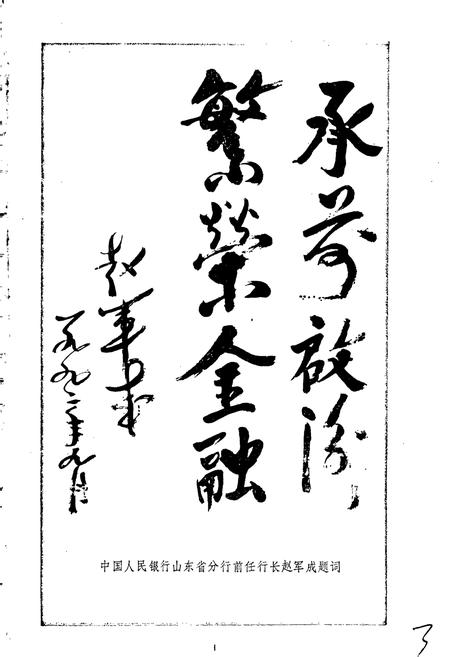 承前啟後
繁榮金融
赵軍成
一九九二年九月
中国人民银行山东省分行前任行长赵军成题词
1
3